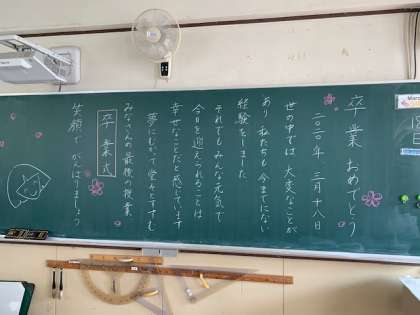 卒業おめでとう
二〇二〇年 三月十八日
世の中では大変なことが
あり、私たちも今までにない
経験をしました
それでもみんな元気で
今日を迎えられることは
幸せなことだと感じています
夢にむかって堂々とすすむ
みなさんの最後の授業
卒業式
笑顔でがんばりましょう